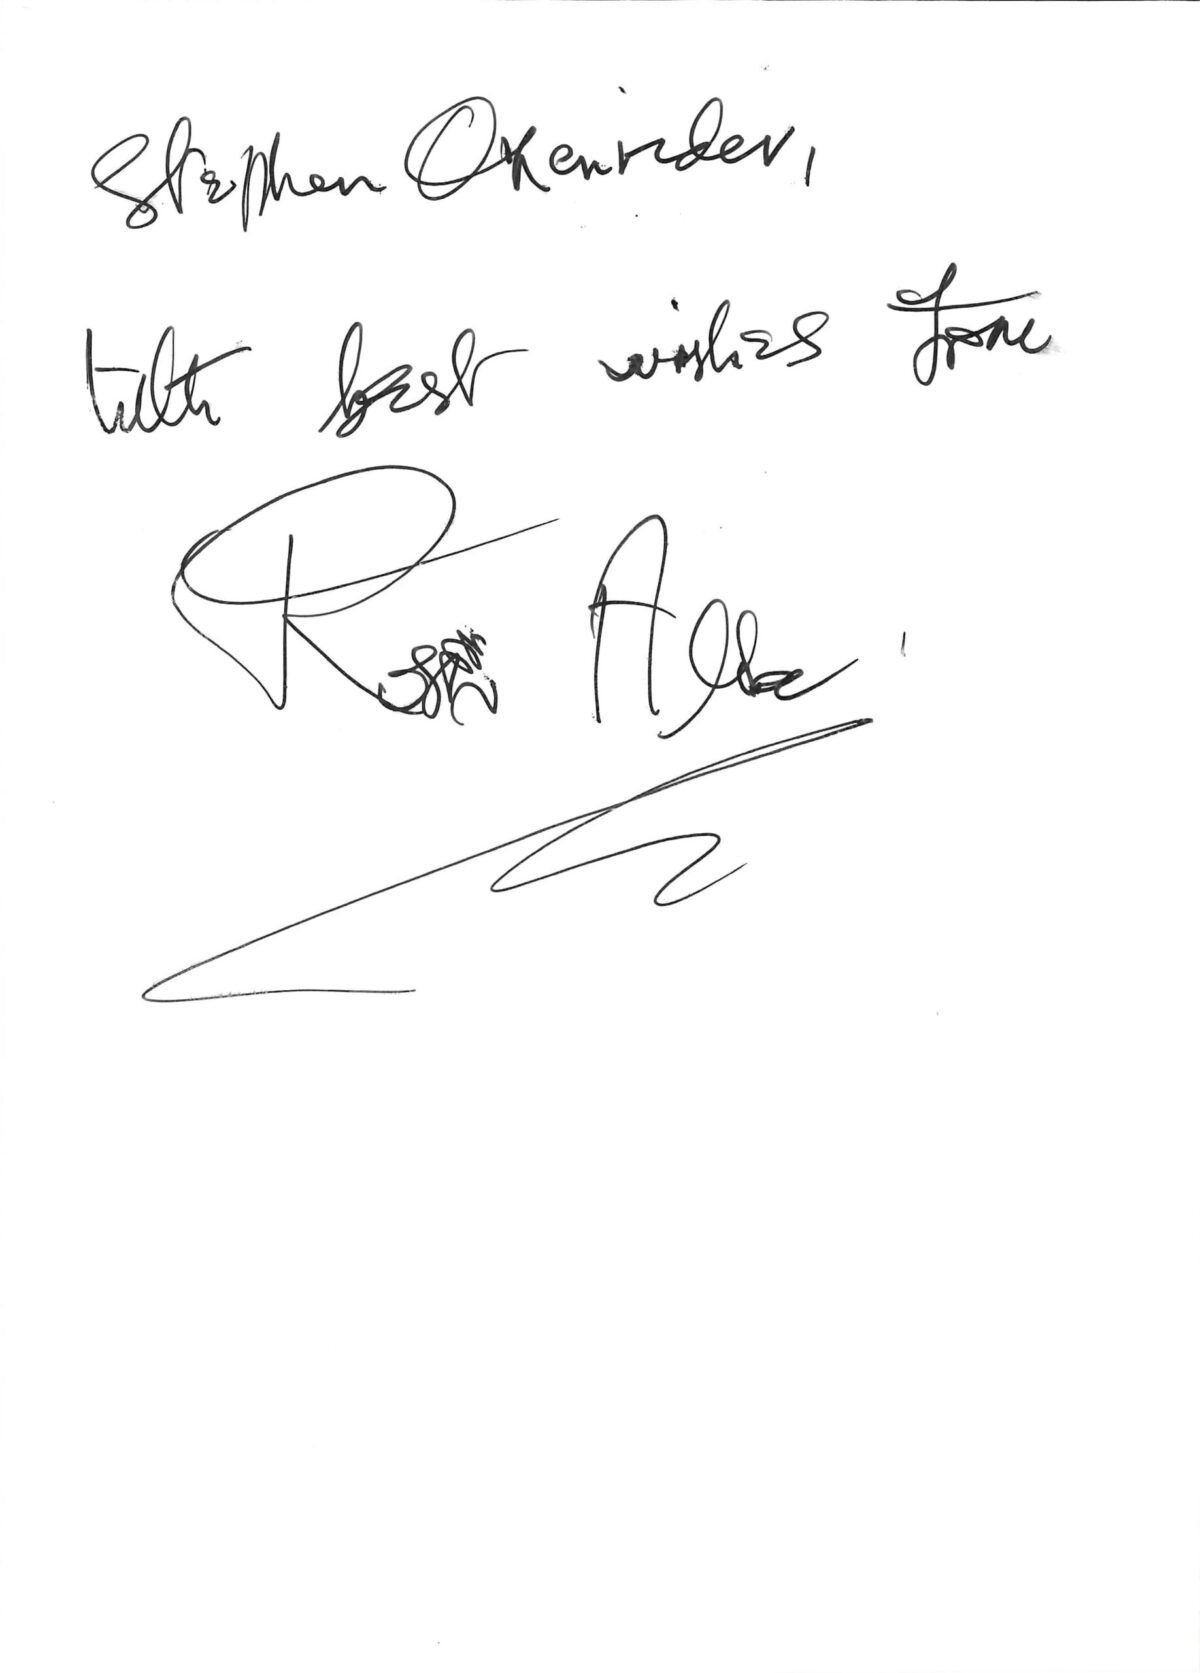 Stephen Oxenrider,
With best wishes from